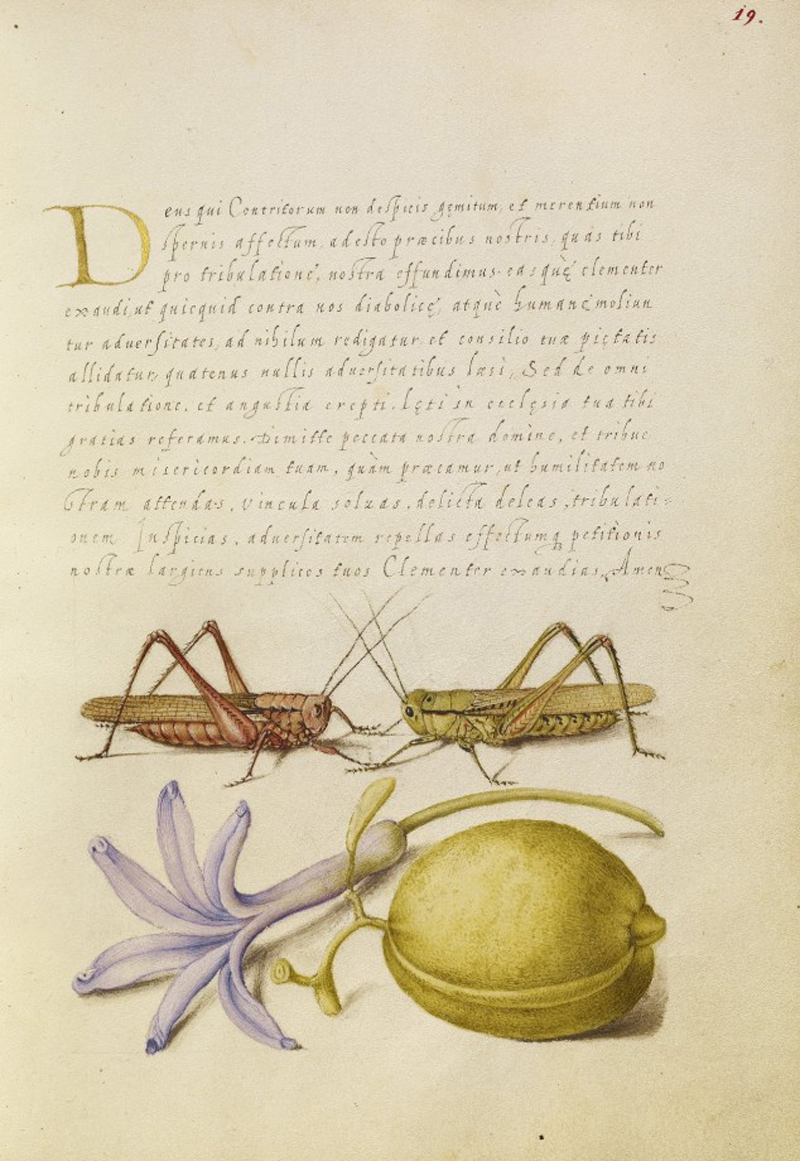 19.
Deus qui Contritorum non despicis gęmitum, et merentium non
spernis affectum, adesto præcibus nostris, quas tibi
pro tribulatione, nostra effundimus. easquę clementer
exaudi, ut quicquid contra nos diabolicę, atquè humanę moliun
tur adversitates, ad nihilum redigatur, et consilio tuæ pietatis
allidatur, quatenus nullis adversitatibus læsi, Sed de omni
tribulatione, et angustia erepti, lęti in ecclęsia tua tibi
gratias referamus. Dimitte peccata nostra domine, et tribue
nobis misericordiam tuam, quàm præcamur, ut humilitatem no
stram attendas, vincula soluas, delicta deleas, tribulati-
onem Inspicias, adversitatem repellas effectumq petitionis
nostræ largiens supplices tuos Clementer exaudias, Amen